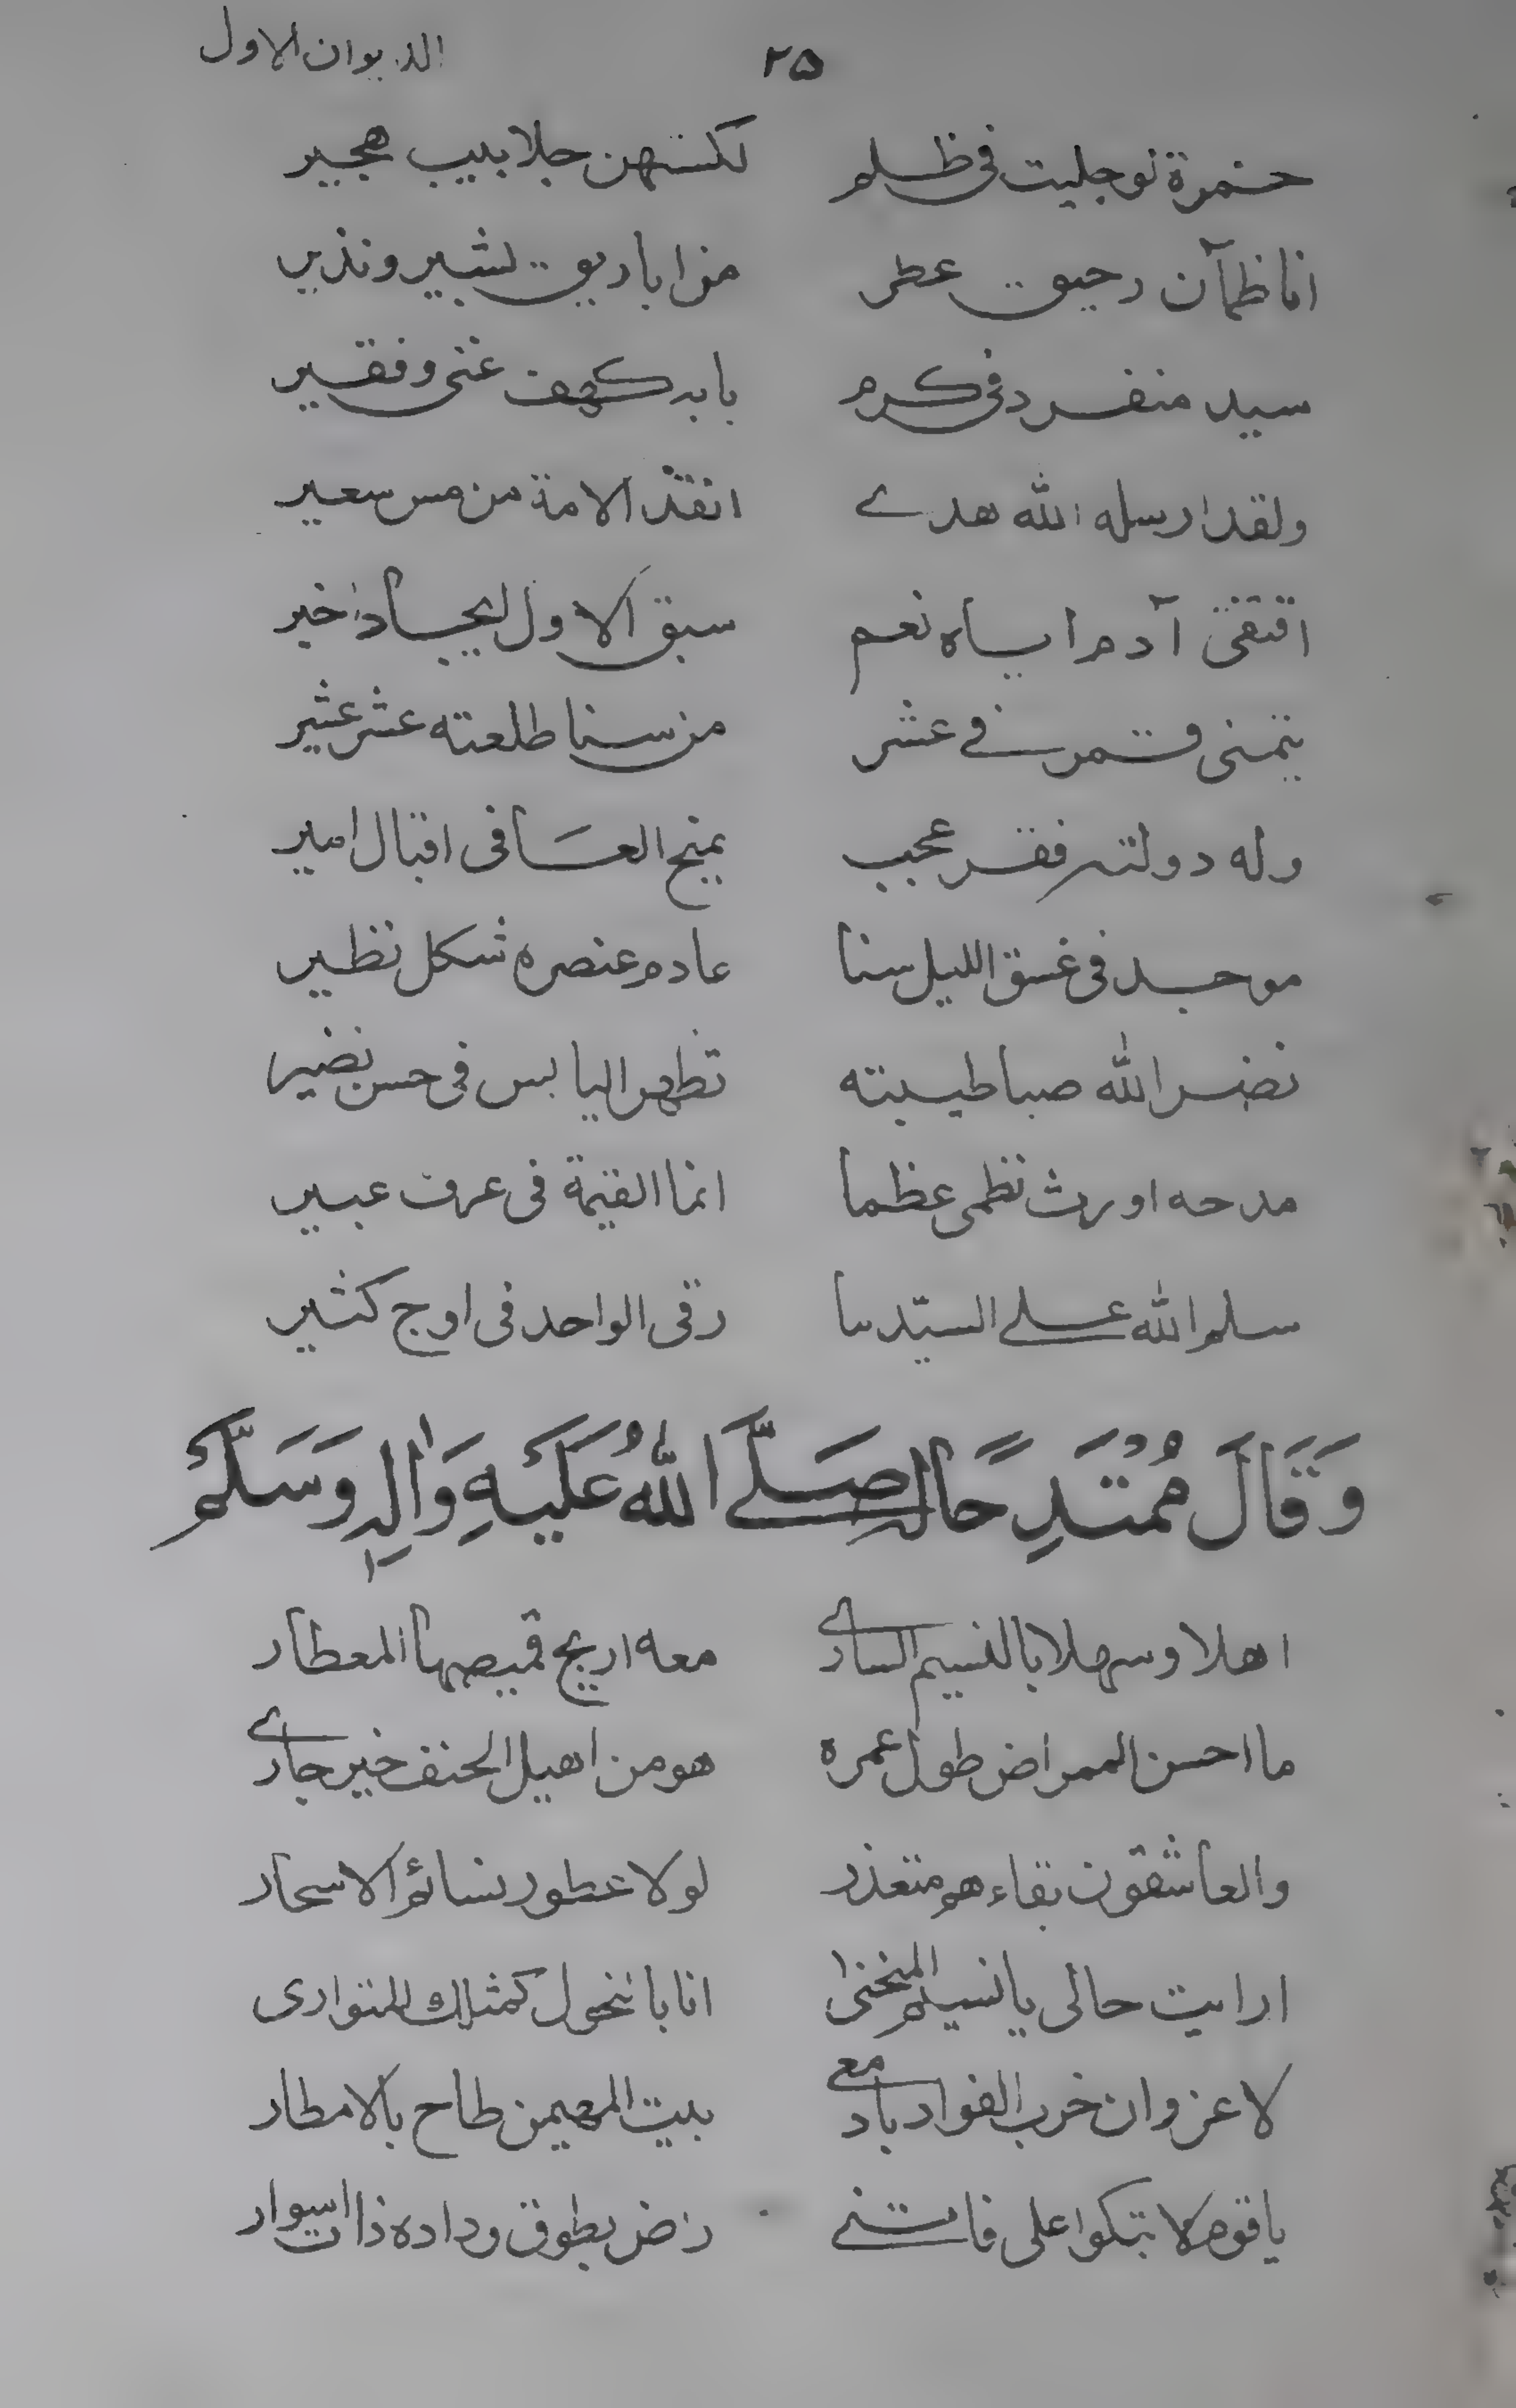 ٢٥ الديوان الاول
خمرة لو جليت فى ظلم لكستهن جلابيب هجير
انا ظمآن رحيق عطر من اباريق بشير ونذير
سيد منفرد فى كرم بابه كهف غنى وفقير
ولقد ارسله الله هدے انقذ الامة من مس سعير
اقتفى آدم اياه نعم سبق الاول ايجاد اخير
يتمنى قمر فے عشر من سنا طلعته عشر عشير
وله دولته فقر عجب يمنح العسا فى اقبال امير
موجد فى غسق الليل سنا عادم عنصره شكل نظير
نضر الله صبا طيبته تظهر اليابس فى حسن نضير
مدحه اورث نظمى عظما انما القيمة فى عرف عبير
سلم الله علے السيد ما رقى الواحد فى اوج كثير
وَقَالَ مُمْتَدِحًا لہ صَلَّے اللهُ عَلَيْهِ وَاٰلِہٖ وَسَلَّمْ
اهلا وسهلا بالنسيم السارے معه اريج قميصها المعطار
ما احسن الممراض طول عمره هو من اهيل الحنف خير جارے
والعاشقون بقاءهم متعذر لولا عطور نسائم الاسحار
ارايت حالى يا نسيم المنحنىٰ انا بالنحول كمثلك المتوارى
لا عزو ان خرب الفواد بادمعے بيت المهيمن طاح بالامطار
يا قوم لا تبكوا على فانـنے راض بطوق وداده ذا اسوار